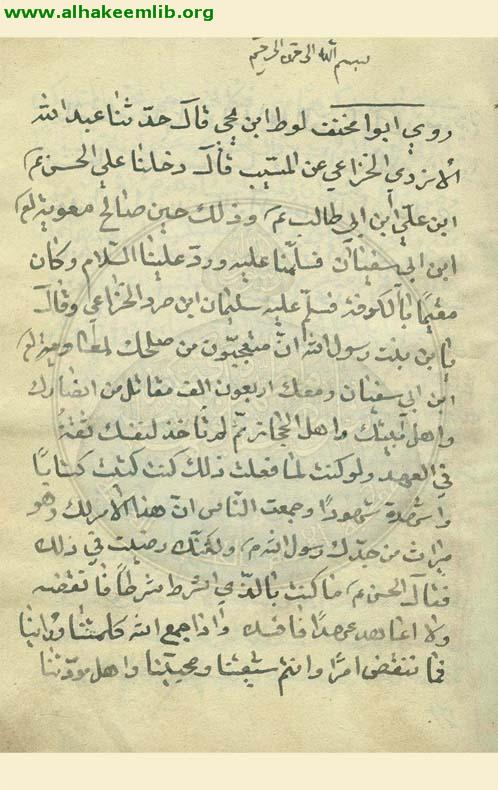 www.alhakeemlib.org
بسم الله الرحمن الرحيم
روي ابوا مخنف لوط ابن يحي قال حدّثنا عبد الله
الازدي الخزاعي عن المسيب قال دخلنا علي الحسن ع
ابن علي ابن ابي طالب ع وذلك حين صالح معوية لع
ابن ابي سفيان فسلّمنا عليه وردّ علينا السّلام وكان
مقيمًا بالكوفة فسلّم عليه سليمان ابن صرد الخزاعي وقال
يا بن بنت رسول الله انّ متعجبّون من صلحك لمعاوية لع
ابن ابي سفيان ومعك اربعون الف مقاتل من انصارك
واهل بيتك واهل الحجاز ثمّ لم تاخذ لنفسك ثقةً
في العهد ولو كنت لمّا فعلت ذلك كنت كتبت كتابًا
واشهدة شهودًا وجمعت النّاس انّ هذا الامر لك وهو
ميراث من جدّك رسول الله ص ولكنّك رضيت في ذلك
فقال الحسن ع ما كنت بالّذي اشرط شرطًا فانقضه
ولا اعاهد عهدًا واذا جمع الله كلمتنا
فما ننقض امرًا وانتم شيعتنا ومحبيّنا واهل مودّتنا